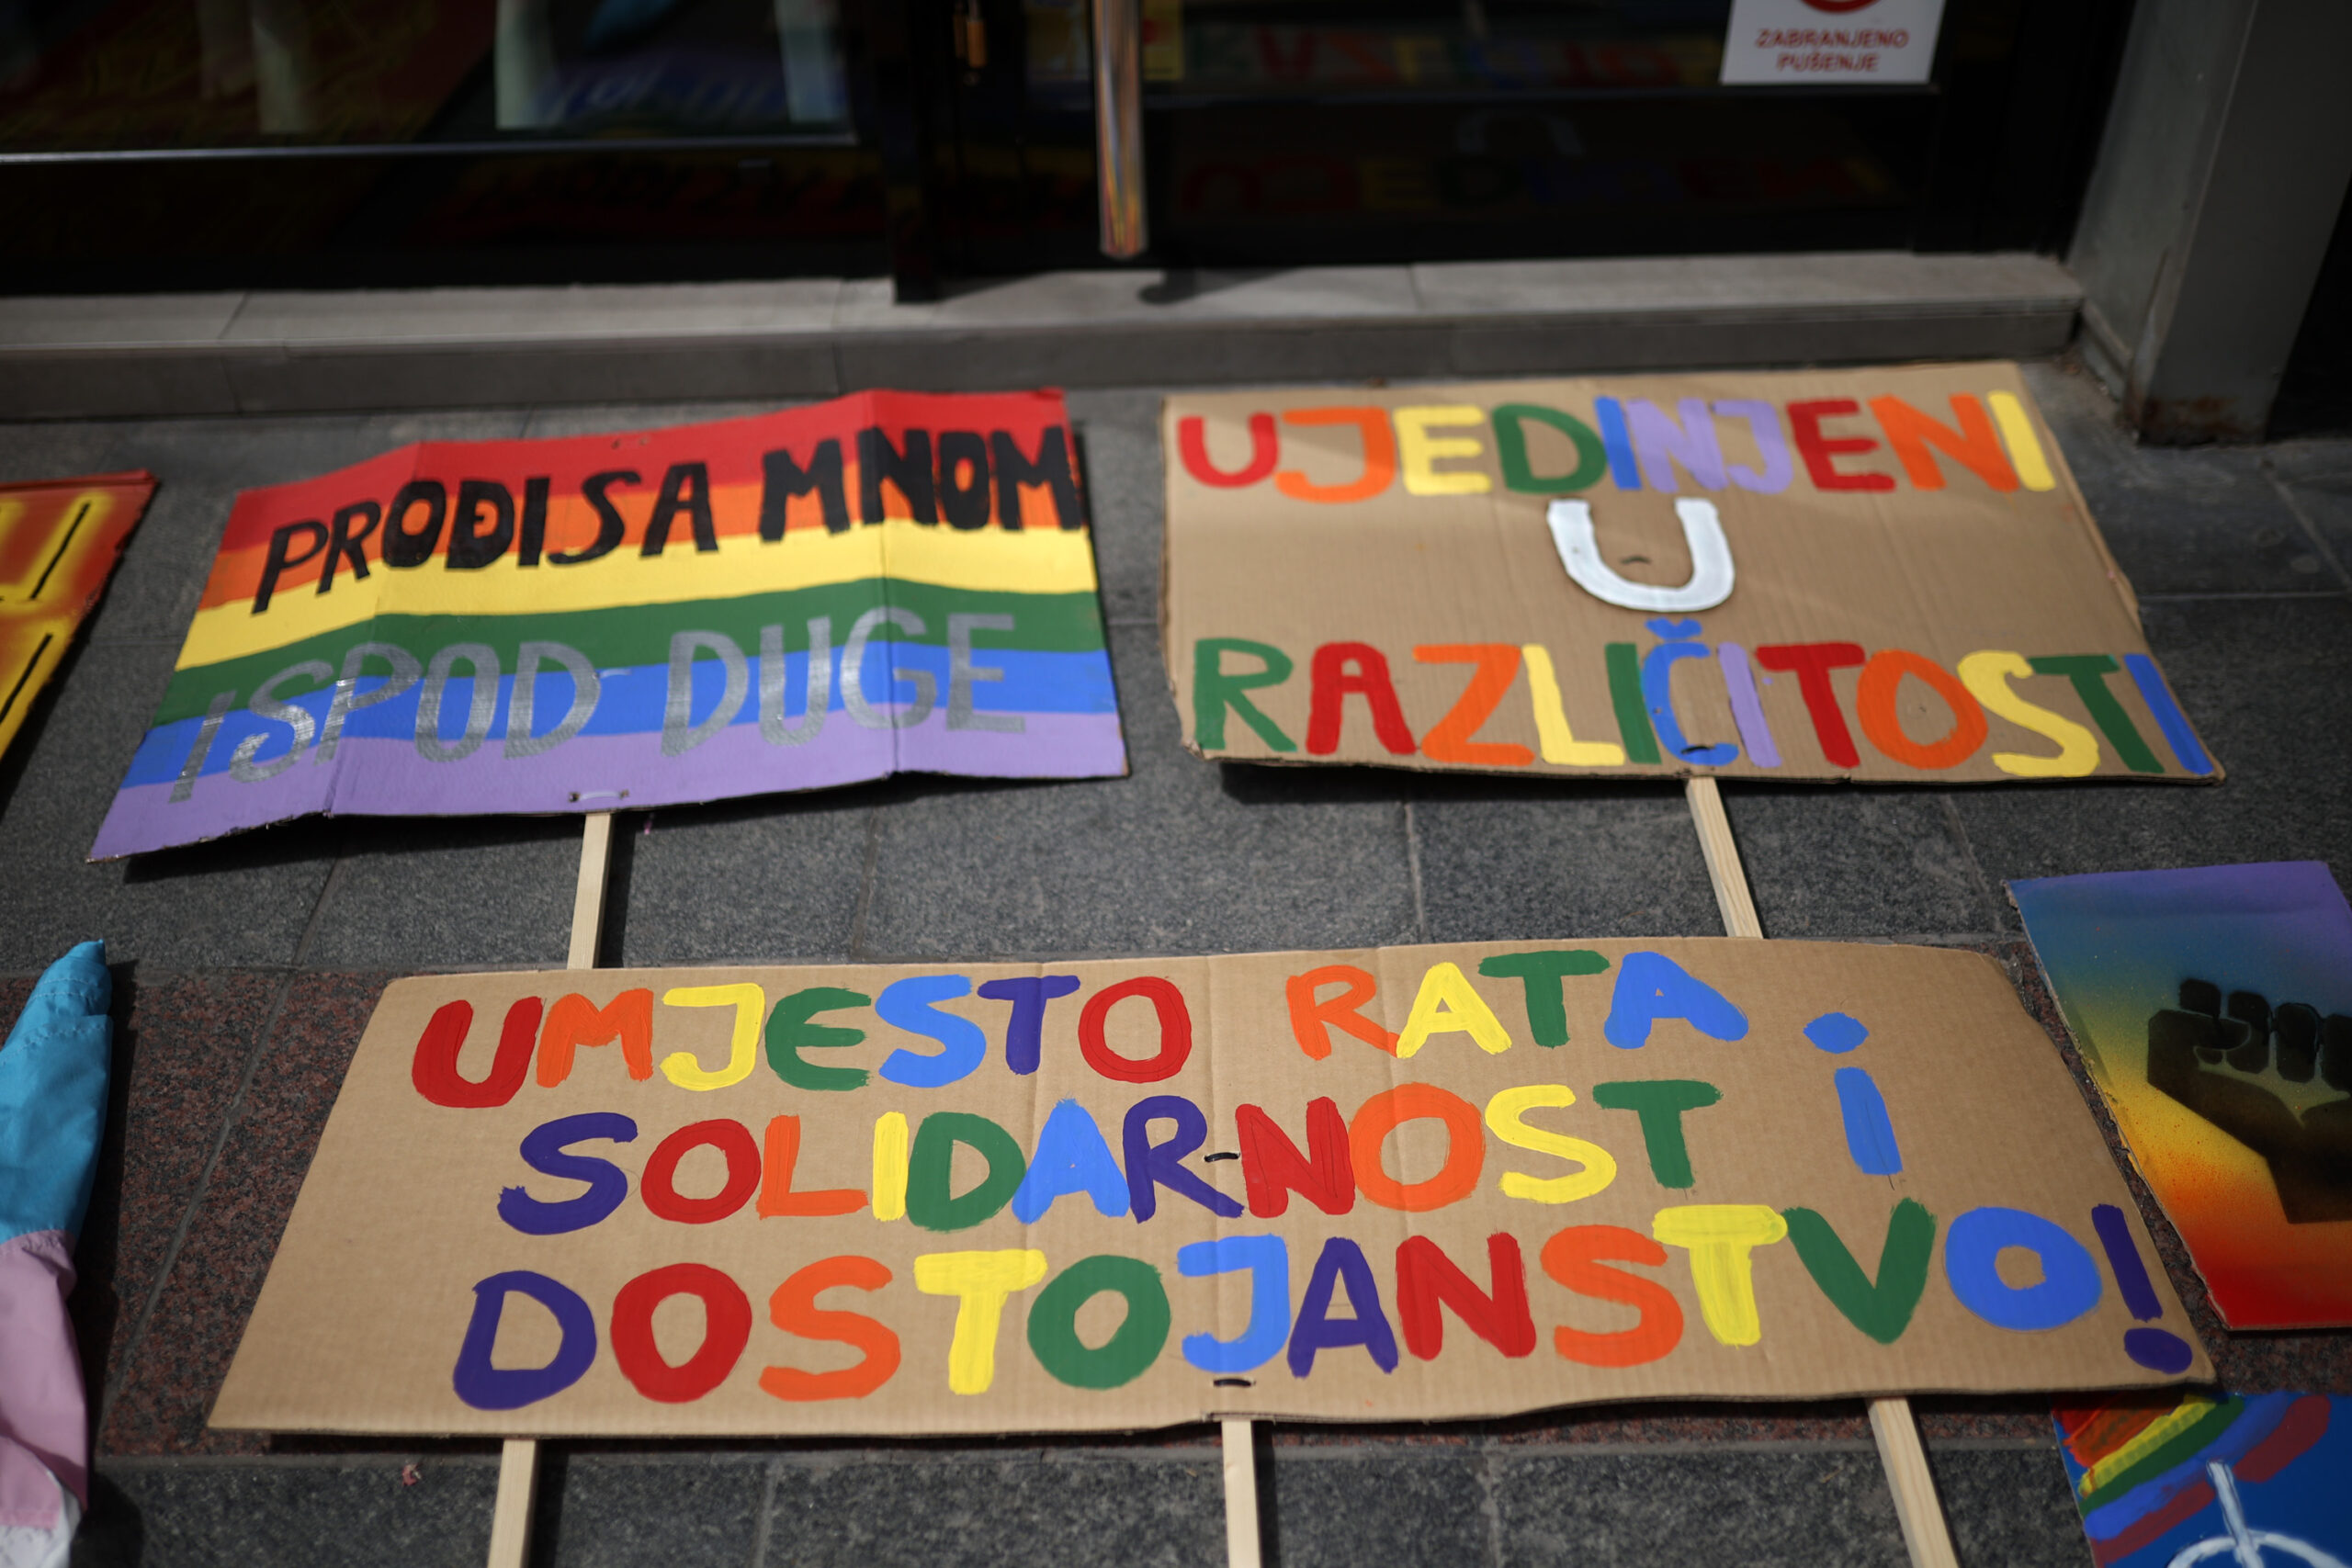 ZABRANJENO
PUŠENJE
PROĐI SA MNOM
ISPOD DUGE
UJEDINJENI
U
RAZLIČITOSTI
UMJESTO RATA
SOLIDARNOST i
DOSTOJANSTVO!